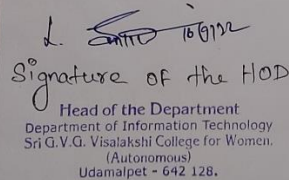 Signature of the HOD
Head of the Department
Department of Information Technology
Sri G.V.G. Visalakshi College for Women,
(Autonomous)
Udamalpet - 642 128.